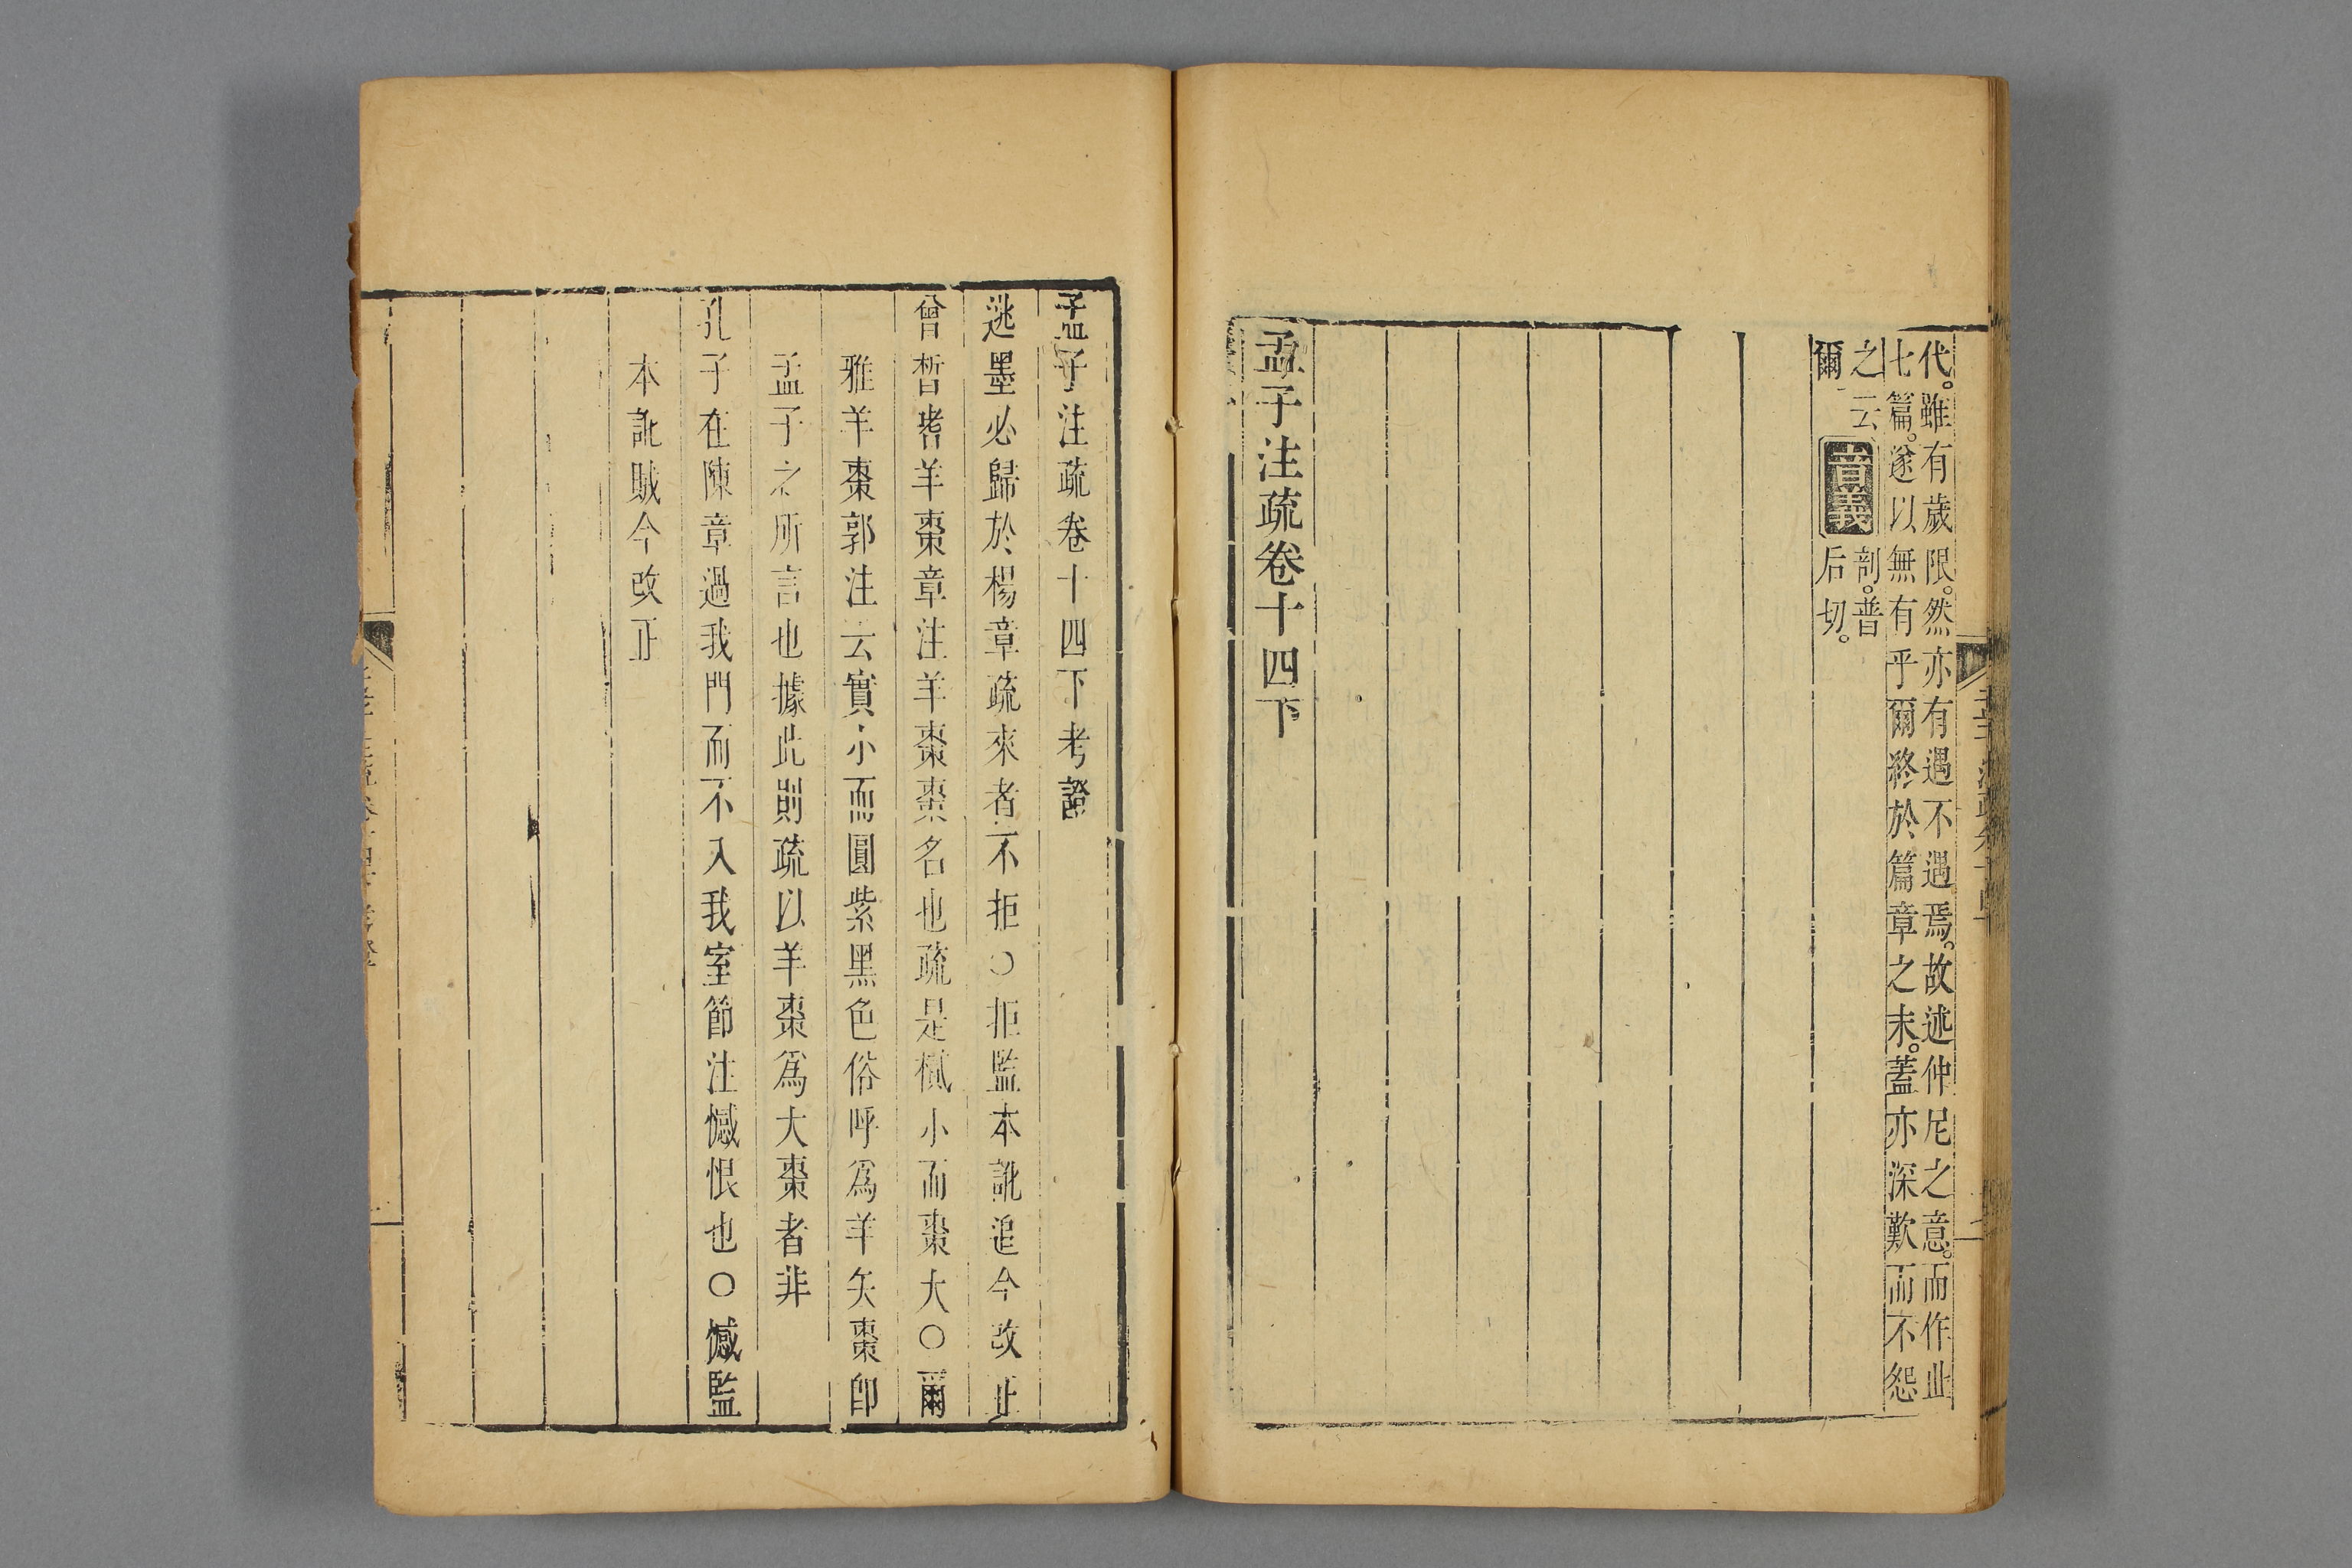 代。雖有歲限。然亦有遇不遇焉。故述仲尼之意。而作此
七篇。遂以無有乎爾終於篇章之末。蓋亦深歎而不怨
之云
爾
音義
剖。普
后切。
孟子注疏卷十四下
孟子注疏卷十四下考證
逃墨必歸於楊章疏來者不拒○拒監本訛追今改正
曾晳嗜羊棗章注羊棗棗名也疏是樲小而棗大○爾
雅羊棗郭注云實小而圓紫黑色俗呼爲羊矢棗卽
孟子之所言也據此則疏以羊棗爲大棗者非
孔子在陳章過我門而不入我室節注憾恨也○憾監
本訛賊今改正